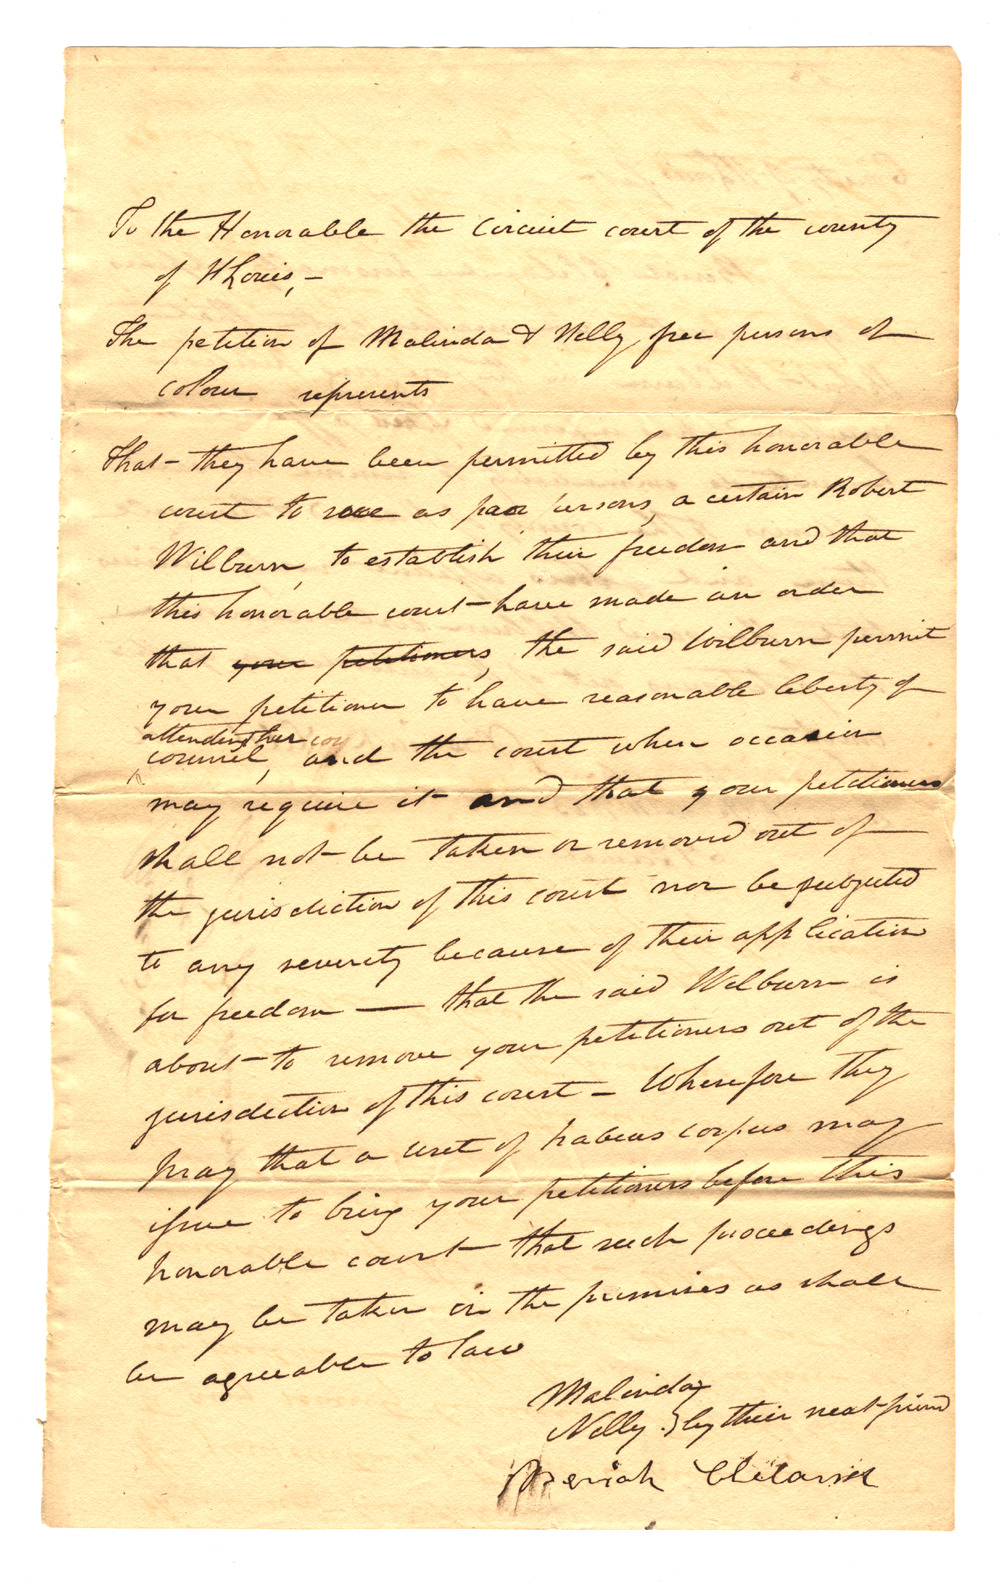 To the Honorable the Circuit court of the county
of St Louis, –
The petition of Malinda & Nelly, free persons of
colour represents
That they have been permitted by this honorable
court to sue as poor persons, a certain Robert
Wilburn, to establish their freedom and that
this honorable court have made an order
that your petitioners, the said Wilburn permit
your petitioner to have reasonable liberty of
attending her cou
counsel, and the court when occasion
may require it and that your petitioners
shall not be taken or removed out of
the jurisdiction of this court nor be subjected
to any severity because of their application
for freedom — that the said Wilburn is
about to remove your petitioners out of the
jurisdiction of this court – Wherefore they
pray that a writ of habeas corpus may
issue to bring your petitioners before this
honorable court that such proceedings
may be taken in the premises as shall
be agreeable to law
Malinda }
Nelly } by their next friend
Beriah Cleland